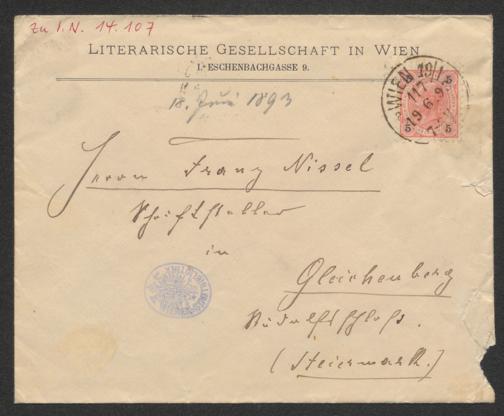 Zu I.N. 14.107
LITERARISCHE GESELLSCHAFT IN WIEN
I. ESCHENBACHGASSE 9.
18. Juni 1893
WIEN
Herrn Franz Nissel
Schriftsteller
in
Gleichenberg
Rudolfschloss.
(Steiermark.)